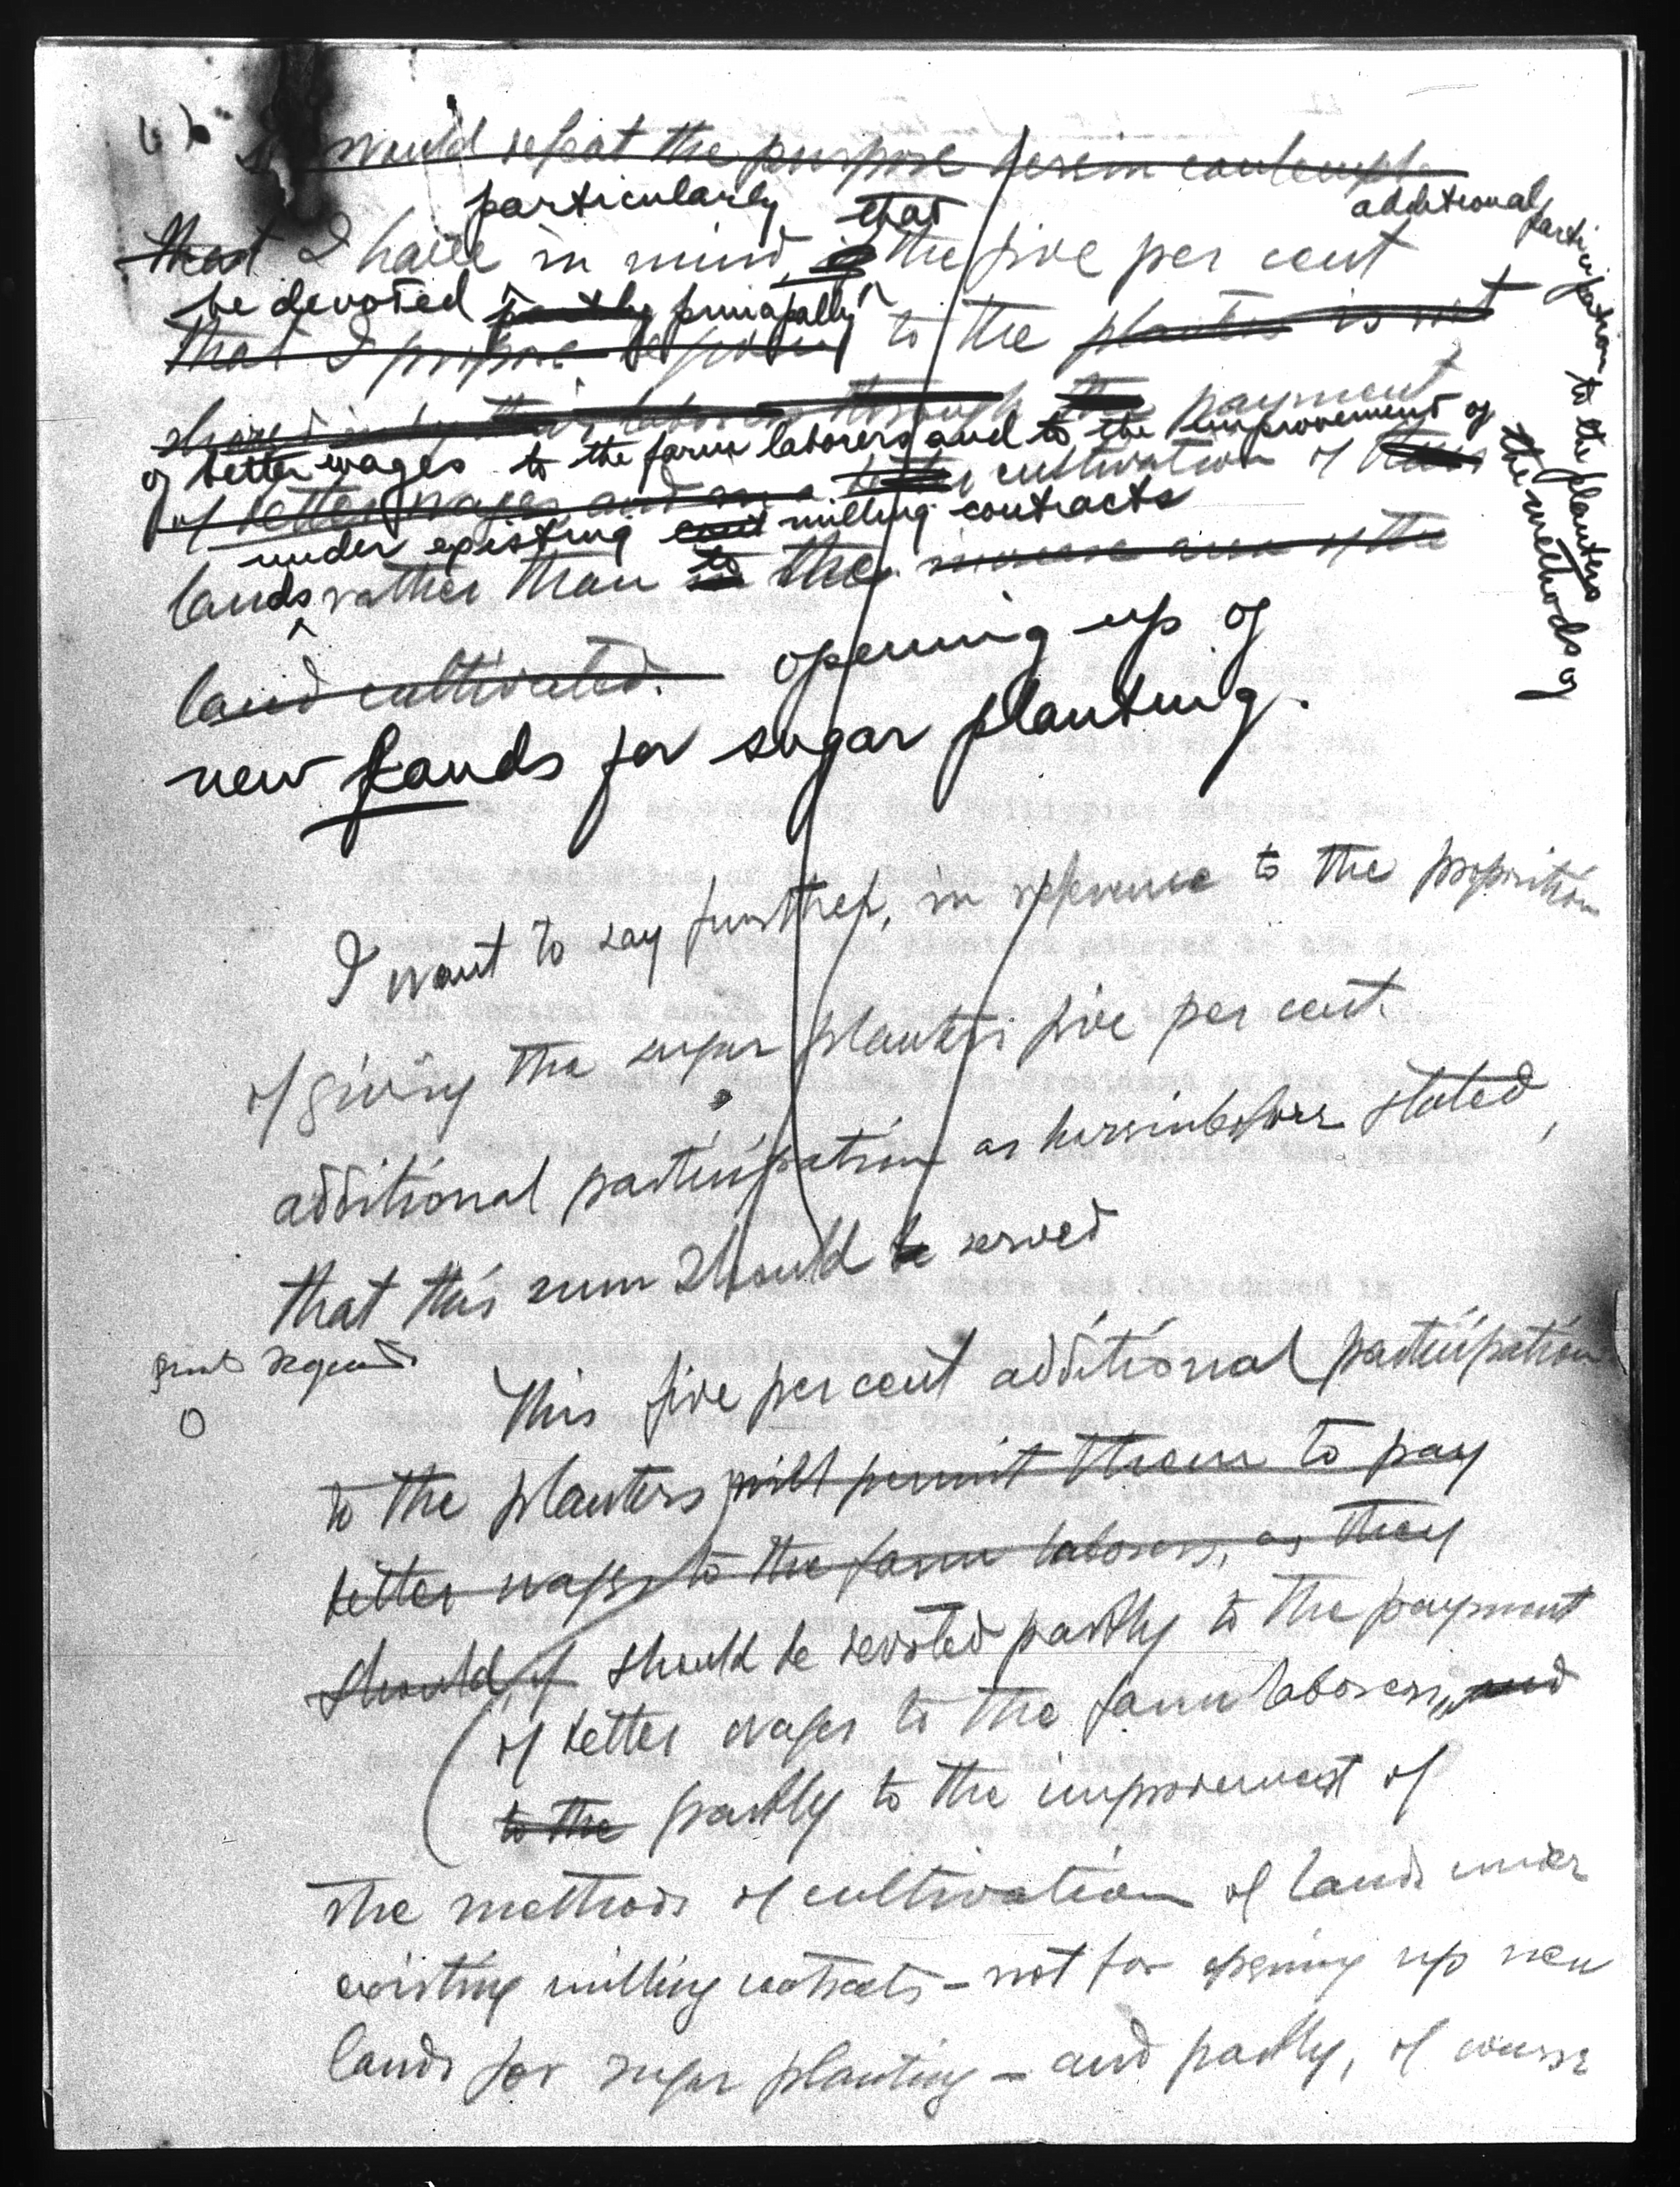 would repeat the purpose herein
particularly that additional participation to the planters
that I have in mind is the five per cent
be devoted partly principally
that I propose to the planters is not
shared in by their laborers through the payment
of better wages to the farm laborers and to the improvement of the methods of
of better wages and cultivation of their
under existing milling contracts
lands rather than to the increase area of the
land cultivated. opening up of
new Lands for sugar planting.
I want to say further, in reference to the proposition
of giving the sugar planters five per cent
additional participation as hereinbefore stated,
that this sum should be served
This five per cent additional participation
to the planters will permit them to pay
better wages to the farm laborers, as they
should, if should be devoted partly to the payment
of better wages to the farm laborers, and
to the partly to the improvement of
the methods of cultivation of lands under
existing milling contracts - not for opening up new
lands for sugar planting - and partly, of course